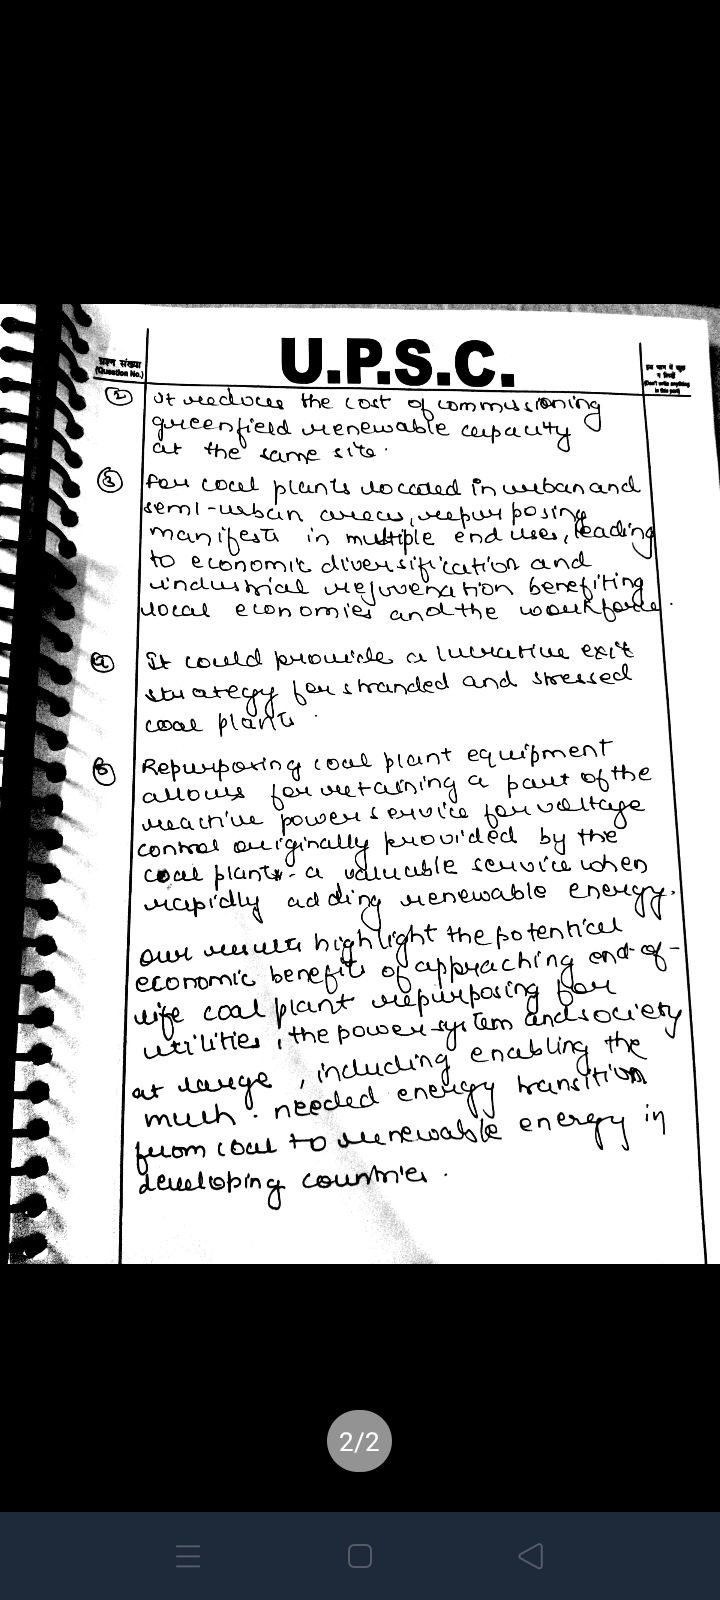 U.P.S.C.
प्रश्न संख्या
(Question No.)
(Don't write anything
in this part)
② It reduces the cost of commissioning
greenfield renewable capacity
at the same site.
③ For coal plants located in urban and
semi-urban areas, repurposing
manifests in multiple end uses, leading
to economic diversification and
industrial rejuvenation benefiting
local economies and the workforce.
④ It could provide a lucrative exit
strategy for stranded and stressed
coal plants.
⑤ Repurposing coal plant equipment
allows for retaining a part of the
reactive power service for voltage
control originally provided by the
coal plants - a valuable service when
rapidly adding renewable energy.
Our results highlight the potential
economic benefits of appraching end-of-
life coal plant repurposing for
utilities, the power system and society
at large, including enabling the
much. needed energy transition
from coal to renewable energy in
developing countries.
2/2